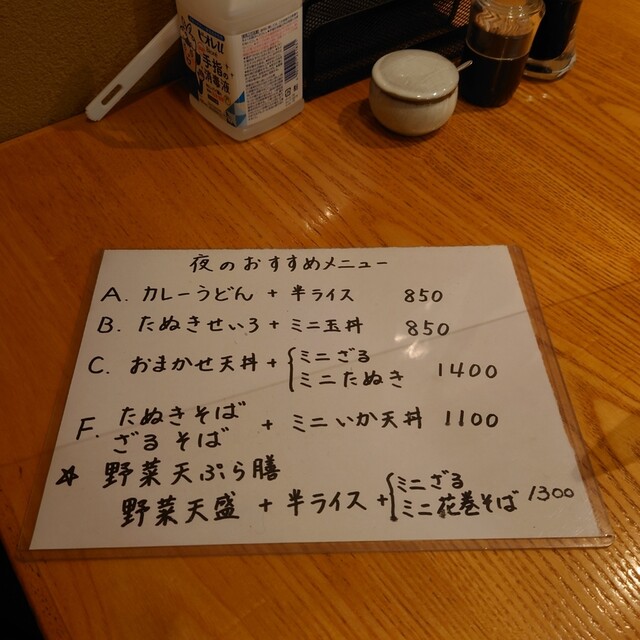 ビオレu
手指の
消毒液
夜のおすすめメニュー
A. カレーうどん + 半ライス 850
B. たぬきせいろ + ミニ玉丼 850
C. おまかせ天丼 + { ミニざる
ミニたぬき 1400
F. たぬきそば
ざるそば + ミニいか天丼 1100
☆ 野菜天ぷら膳
野菜天盛 + 半ライス + { ミニざる
ミニ花巻そば 1300